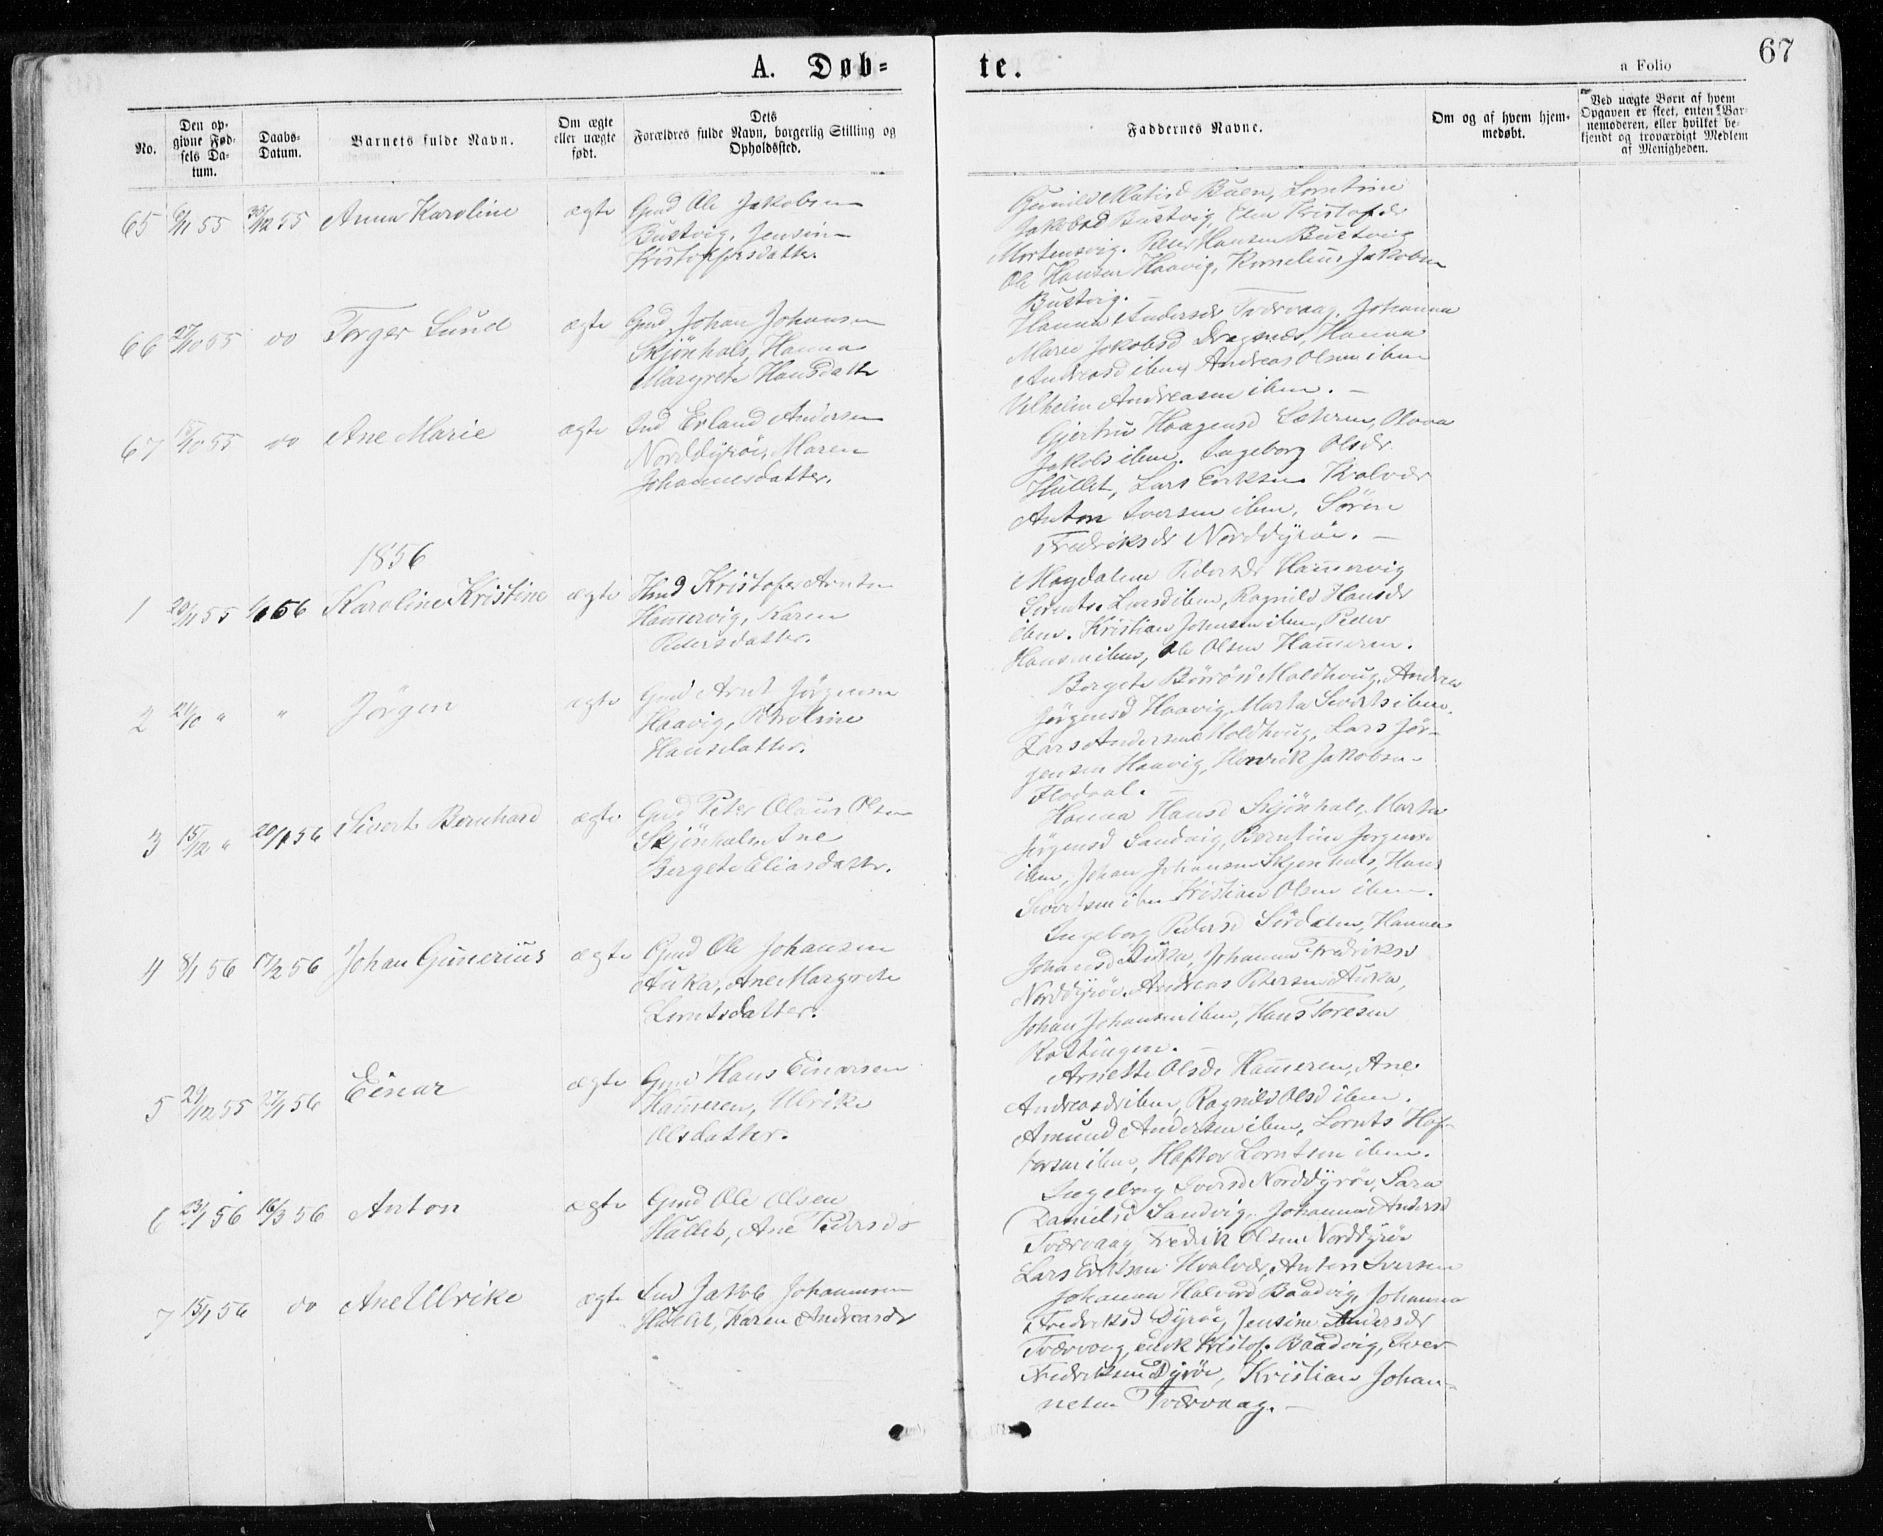 A. Døb=
te.
a Folio
67
No.
Den op-
givne Fød-
sels Da-
tum.
Daabs-
Datum.
Barnets fulde Navn.
Om ægte
eller uægte
født.
Dets
Forældres fulde Navn, borgerlig Stilling og
Opholdssted.
Faddernes Navne.
Om og af hvem hjem-
medøbt.
Ved uægte Børn af hvem
Opgaven er skeet, enten Bar-
nemoderen, eller hvilket be-
kjendt og troværdigt Medlem
af Menigheden.
65 6/11 55 30/12 55 Anna Karoline ægte Gmd Ole Jakobsen
Bustvig, Jensin-
Kristoffersdatter
Gunild Matisd Buen, Lorntine
Jakobsd Bustvig, Elen Kristofdr
Mortensvig. Peder Hansen Bustvig
Ole Hansen Haavig, Kornelius Jakobsen
Bustvig.
66 27/10 55 do Torger Lund ægte Gmd Johan Johansen
Skjönhals, Hanna
Margrete Hansdatter
Hanna Andersdr Tværvaag, Johanna
Maren Jakobsd Dragsnes, Hanna
Andreasd ibm, Andreas Olsen ibm
Vilhelm Andreasen ibm. –
67 15/10 55 do Ane Marie ægte Ind Erland Andersen
Norddyröi, Maren
Johannesdatter.
Gjertru Haagensd Sæteren, Olava
Jakobs ibm. Ingeborg Olsdr
Hallet, Lars Eriksen Kvalvær
Anton Iversen ibm, Sören
Fredriksdr Norddyröi. –
1856
1 20/11 55 1/1 56 Karoline Kristine ægte Hmd Kristofer Arntsen
Hamervig, Karen
Pedersdatter.
Magdalena Pedersdr Hamervig
Larsd ibm, Ragnild Hansdr
ibm. Kristian Johnsen ibm, Peder
Hansen ibm, Ole Olsen Hameren.
2 21/10 " " Jörgen ægte Gmd Arnt Jörgensen
Haavig, Karoline
Hansdatter.
Börösd Moldhaug, Andrea
Jörgensd Haavig, Marta Sivertsd ibm.
Lars Andersen Moldhaug, Lars Jör-
gensen Haavig, Henrik Jakobsen
3 15/12 " 20/1 56 Sivert Bernhard ægte Gmd Peter Olaus Olsen
Skjönhals, Ane
Bergete Eliasdatter.
Hanna Hansd Skjönhals, Marta
Jörgensd Sandvig, Berntine Jörgensd
ibm, Johan Johansen Skjönhals, Hans
Sivertsen ibm Kristian Olsen ibm.
4 8/1 56 17/2 56 Johan Gunerius ægte Gmd Ole Johansen
Auka, Ane Margrete
Lorntsdatter.
Ingeborg Pedersd Sördalen, Hanna
Johansd Auka, Johanna Fredriksd
Norddyröi. Andreas Petersen Auka,
Johan Johansen ibm, Hans Toresen
Kottingen. –
5 29/12 55 27/1 56 Einar ægte Gmd Hans Einarsen
Hameren, Ulrike
Olsdatter.
Arnette Olsdr Hameren, Ane
Andreasdr ibm, Ragnild Olsd ibm.
Amund Andersen ibm, Lornts Haf-
torsen ibm, Haftor Lorntsen ibm.
6 23/1 56 16/3 56 Anton ægte Gmd Ole Olsen
Hallet, Ane Pedersdr
Ingeborg Iversd Norddyröi, Sara
Danielsd Sandvig, Johanna Andersd
Tværvaag, Fredrik Olsen Norddyröi
Lars Eriksen Kvalvær, Anton Iversen
7 15/1 56 do Ane Ulrike ægte Ind Jakob Johannesen
Hallet, Karen Andreasdr
Johanna Halvord Baadvig, Johanna
Fredriksd Dyröi, Jensine Andersdr
Tværvaag, Erik Kristof. Baadvig, Iver
Fredriksen Dyröi, Kristian Johan-
nesen Tværvaag. –